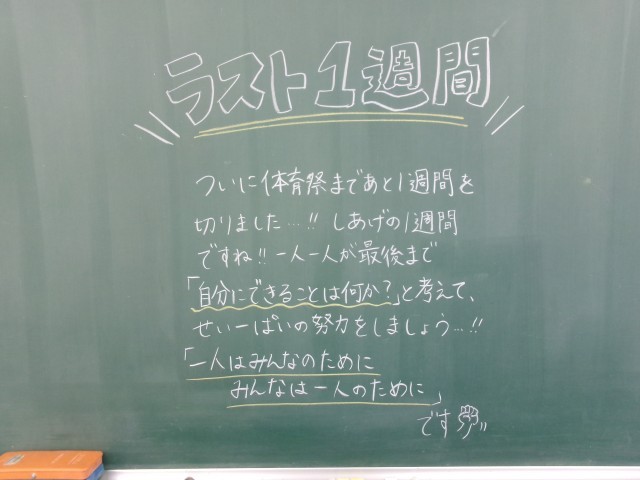 ラスト1週間
ついに体育祭まであと1週間を
切りました…!! しあげの1週間
ですね!! 一人一人が最後まで
「自分にできることは何か?」と考えて、
せいーぱいの努力をしましょう…!!
「一人はみんなのために
みんなは一人のために」
です